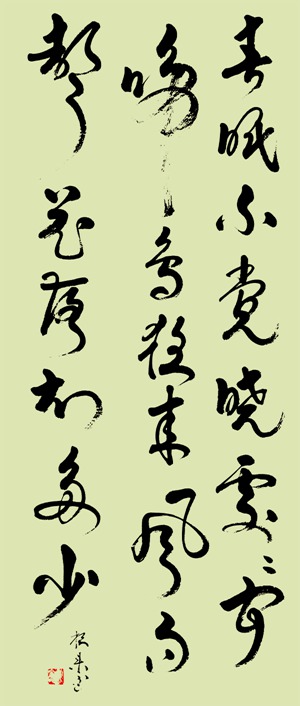 春眠不覺曉處〻聞
啼鳥夜来風雨
聲花落知多少